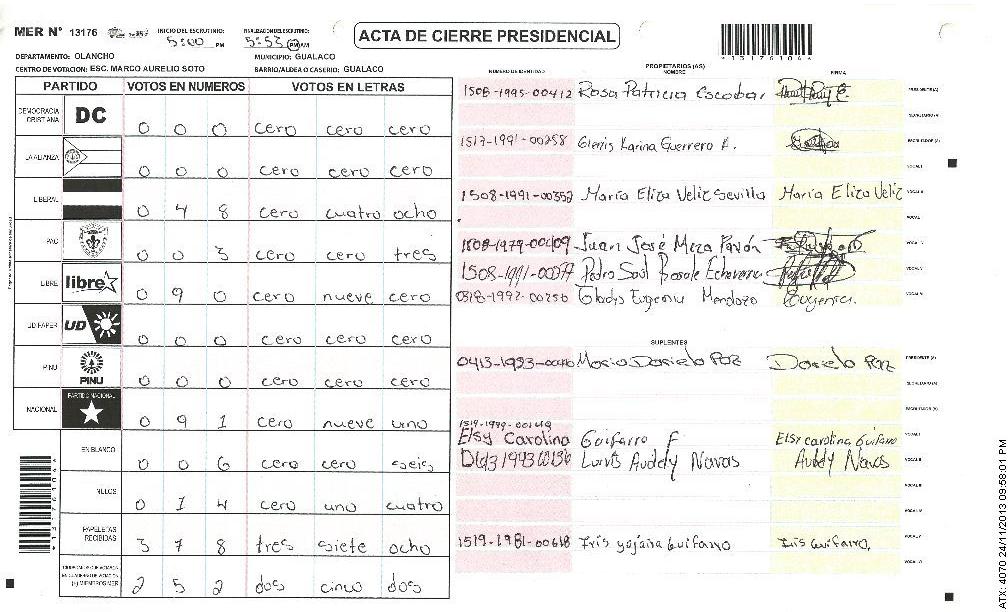 MER N° 13176
INICIO DEL ESCRUTINIO: 5:00 PM
FINALIZACION DEL ESCRUTINIO: 5:53 PM AM
ACTA DE CIERRE PRESIDENCIAL
DEPARTAMENTO: OLANCHO
MUNICIPIO: GUALACO
CENTRO DE VOTACION: ESC. MARCO AURELIO SOTO
BARRIO/ALDEA O CASERIO: GUALACO
PARTIDO VOTOS EN NUMEROS VOTOS EN LETRAS
DEMOCRACIA CRISTIANA DC 0 0 0 cero cero cero
LA ALIANZA 0 0 0 cero cero cero
LIBERAL 0 4 8 cero cuatro ocho
PAC 0 0 3 cero cero tres
LIBRE libre 0 9 0 cero nueve cero
UD FAPER UD 0 0 0 cero cero cero
PINU PINU 0 0 0 cero cero cero
NACIONAL PARTIDO NACIONAL 0 9 1 cero nueve uno
EN BLANCO 0 0 6 cero cero seis
NULOS 0 1 4 cero uno cuatro
PAPELETAS RECIBIDAS 3 7 8 tres siete ocho
2 5 2 dos cinco dos
PROPIETARIOS (AS)
NUMERO DE IDENTIDAD NOMBRE FIRMA
1508-1995-00412 Rosa Patricia Escobar PRESIDENTE(A)
SECRETARIO(A)
1517-1991-00258 Glenis Karina Guerrero ESCRUTADOR (A)
VOCAL I
1508-1991-00352 María Eliza Veliz Sevilla María Eliza Veliz VOCAL II
1508-1979-00409 Juan José Meza Pavón
1508-1991-00077 Pedro
0318-1992-00250 Gladis Eugenia Mendoza Eugenia
SUPLENTES
0413-1983- Maria Daniela Paz Daniela Paz PRESIDENTE (A)
SECRETARIO(A)
ESCRUTADOR (A)
1519-1999-00149
Elsy Carolina Guifarro F Elsy carolina Guifarro
Auddy Navas Auddy Navas
1519-1981-00618 Iris yojana Guifarro Iris Guifarro.
*13176104*
ATX: 4070 24/11/2013 09:58:01 PM